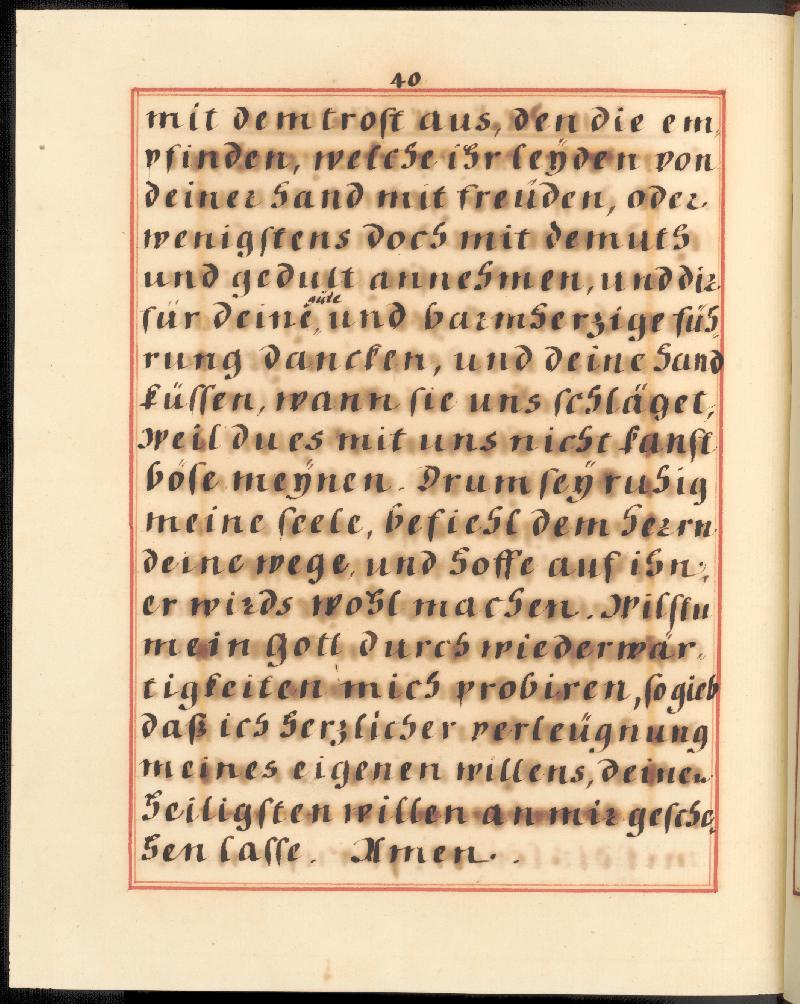 40
mit dem trost aus, den die em,
pfinden, welche ihr leÿden von
deiner hand mit freüden, oder
wenigstens doch mit demuth
und gedult annehmen, und dir
güte
für deine, und barmherzige füh,
rung dancken, und deine hand
küssen, wann sie uns schläget,
Weil du es mit uns nicht kanst
böse meÿnen. Drum seÿ ruhig
meine seele, befiehl dem herrn
deine wege, und hoffe auf ihn,
er wirds wohl machen. Wilstu
mein Gott durch wiederwär,
tigkeiten mich probiren, so gieb
daß ich herzlicher verleügnung
meines eigenen willens, deinen
heiligsten willen an mir gesche,
hen lasse. Amen.